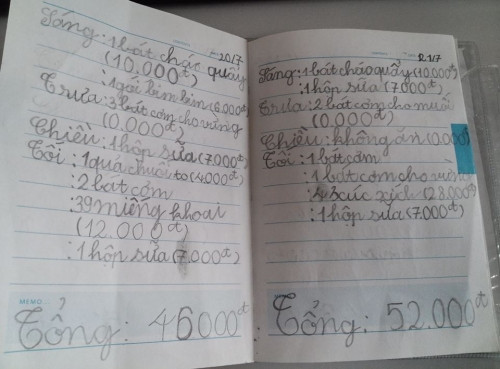 20/7
Sáng: 1 bát cháo quẩy
(10.000đ)
: 1 gói bim bim (6.000đ)
Trưa: 3 bát cơm cho vừng
(0.000đ)
Chiều: 1 hộp sữa (7.000đ)
Tối: 1 quả chuối to (4.000đ)
: 2 bát cơm
: 39 miếng khoai
(12.000đ)
: 1 hộp sữa (7.000đ)
MEMO
Tổng: 46000đ
21/7
Sáng: 1 bát cháo quẩy (10.000đ)
: 1 hộp sữa (7.000đ)
Trưa: 2 bát cơm cho muối
(0.000đ)
Chiều: không ăn (0.000
Tối: 1 bát cơm
: 1 bát cơm cho vừng
: 4 xúc xích (28.000đ)
: 1 hộp sữa (7.000đ)
Tổng: 52.000đ